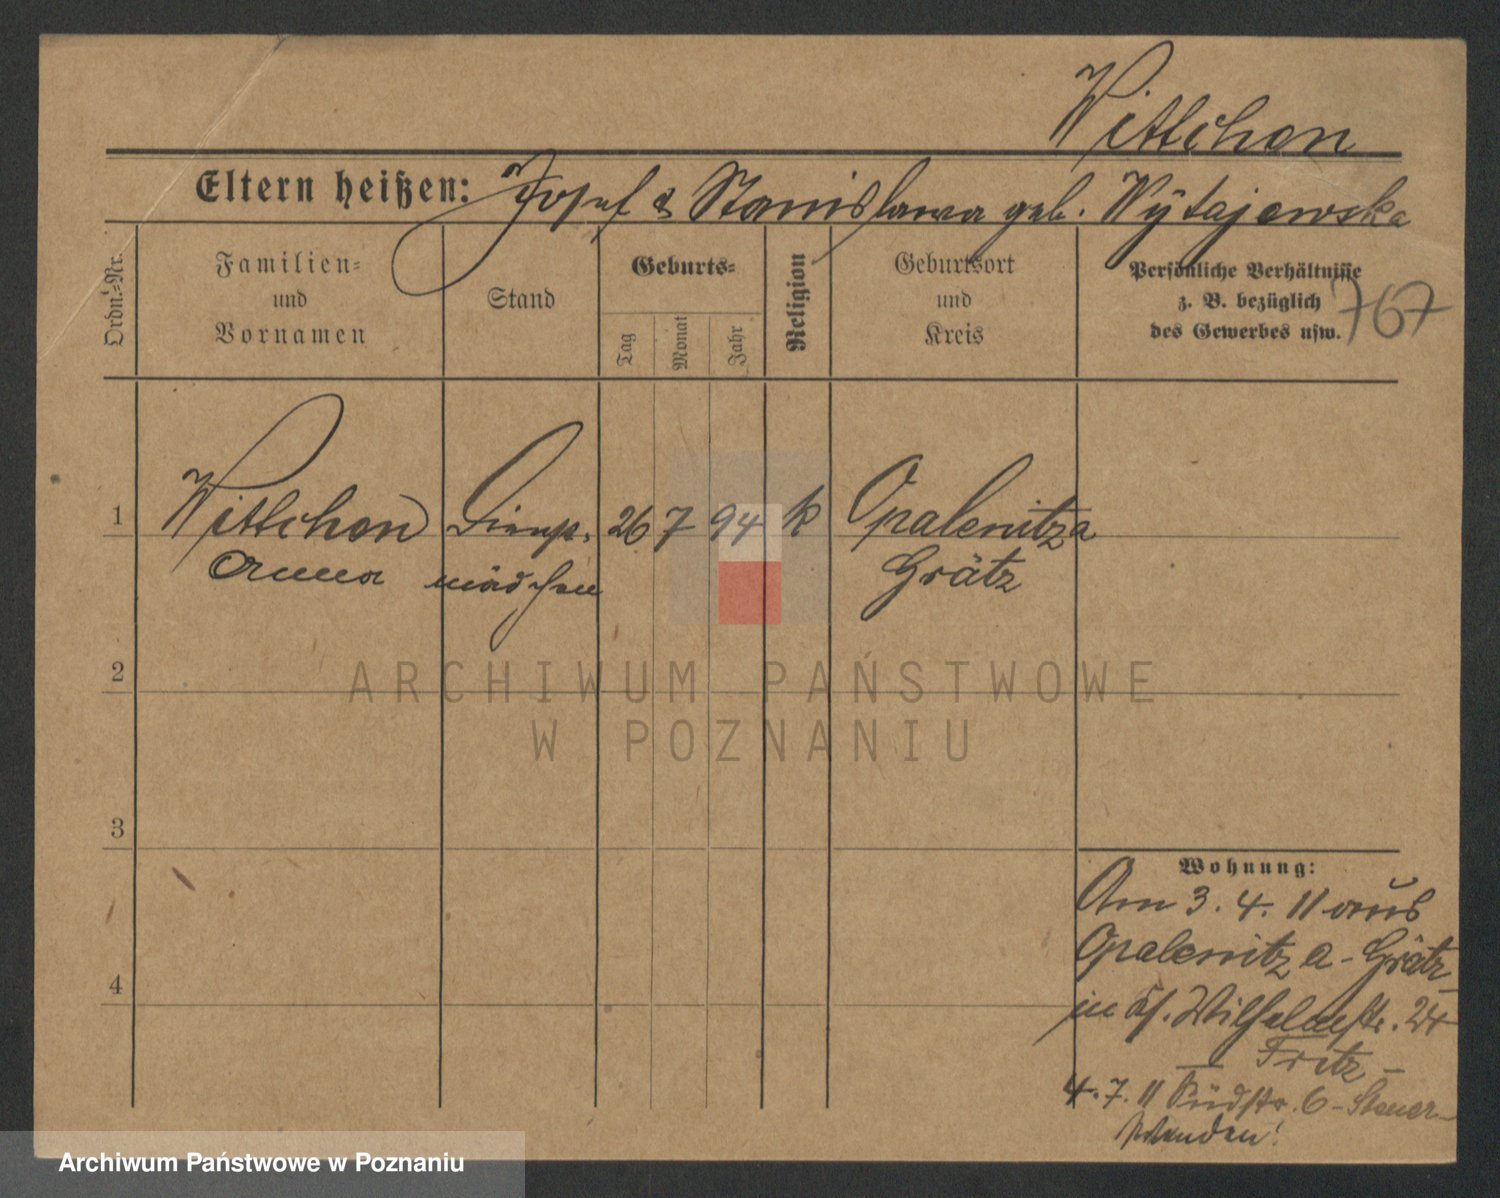 Wittchon
Eltern heißen: Josef & Stanislawa geb. Wÿtajewska
Ordn.-Nr.
Familien-
und
Vornamen
Stand
Geburts-
Tag
Monat
Jahr
Religion
Geburtsort
und
Kreis
Persönliche Verhältnisse
z. B. bezüglich
des Gewerbes usw.
767
1 Wittchon Dienst- 26 7 94 k Opalenitza
Anna mädchen Grätz
2
3
4
Wohnung:
Am 3. 4. 11 aus
Opalenitza-Grätz
in Wilhelmstr. 24
- Fritz -
4. 7. 11 Südstr. 6 -
ARCHIWUM PAŃSTWOWE
W POZNANIU
Archiwum Państwowe w Poznaniu